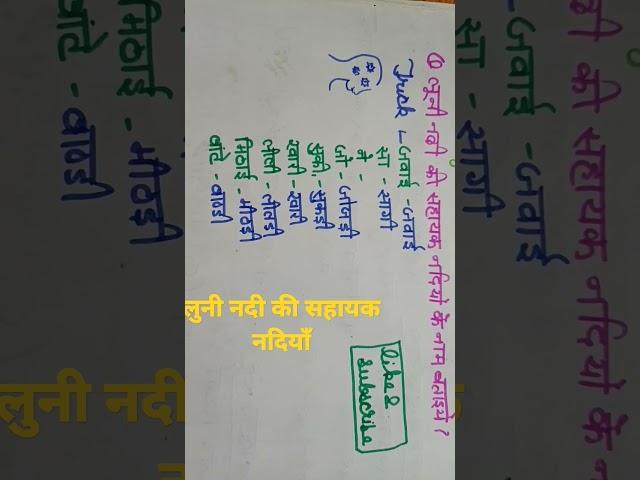 ① लुनी नदी की सहायक नदियो के नाम बताइये ?
Trick - जवाई - जवाई
सा - सागी
ने -
जो - जोजड़ी
सुकी - सुकड़ी
खारी - खारी
लीली - लीलड़ी
मिठाई - मीठड़ी
बांटे - बाण्डी
like &
subscribe
लुनी नदी की सहायक
नदियाँ